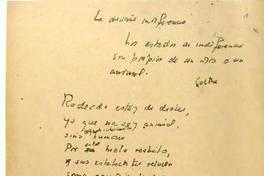 La divina indiferencia
Los estados de indiferencia
son propios de un dios o un
animal.
Goethe
Rodeado estoy de dioses,
ya que no soy animal,
sino humano
Por este hielo resbalo,
y sus estalactitas relucen
como